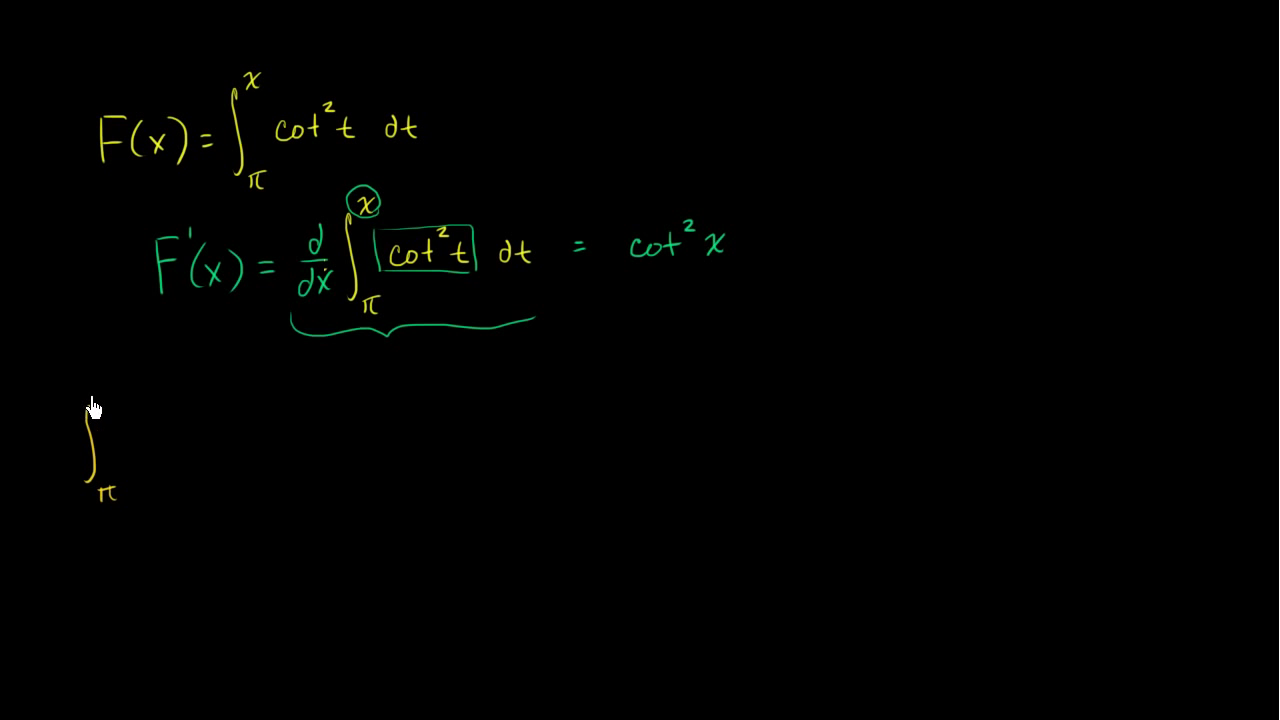 F(x) = ∫_π^x cot² t dt
F'(x) = d/dx ∫_π^x cot² t dt = cot² x
∫_π